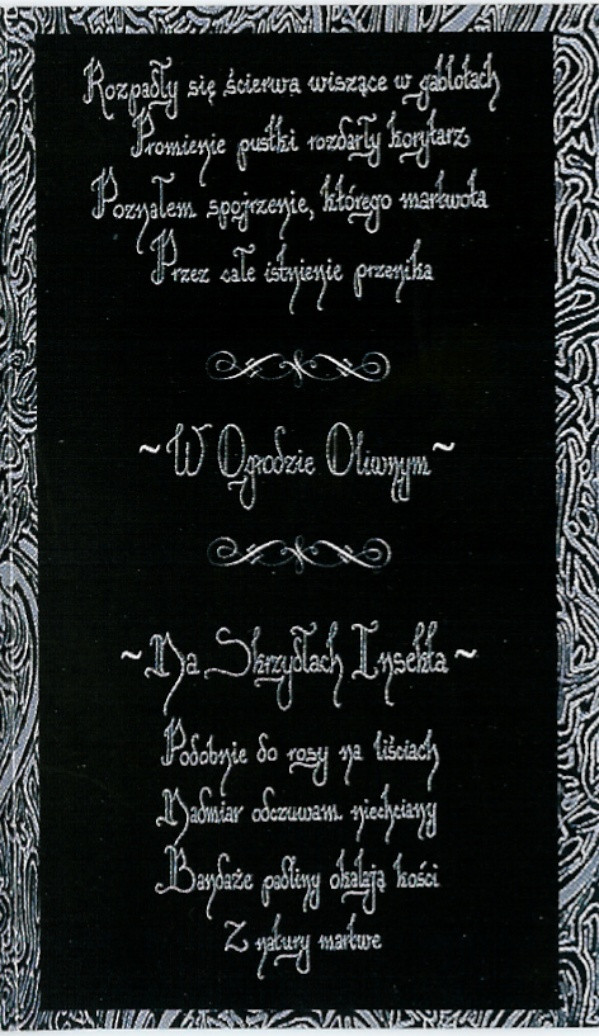 Rozpadły się ścierwa wiszące w gablotach
Promienie pustki rozdarły korytarz
Poznałem spojrzenie, którego martwota
Przez całe istnienie przenika
~ W Ogrodzie Oliwnym ~
~ Na Skrzydłach Insekta ~
Podobnie do rosy na liściach
Nadmiar odczuwam niechciany
Bandaże padliny okalają kości
Z natury martwe